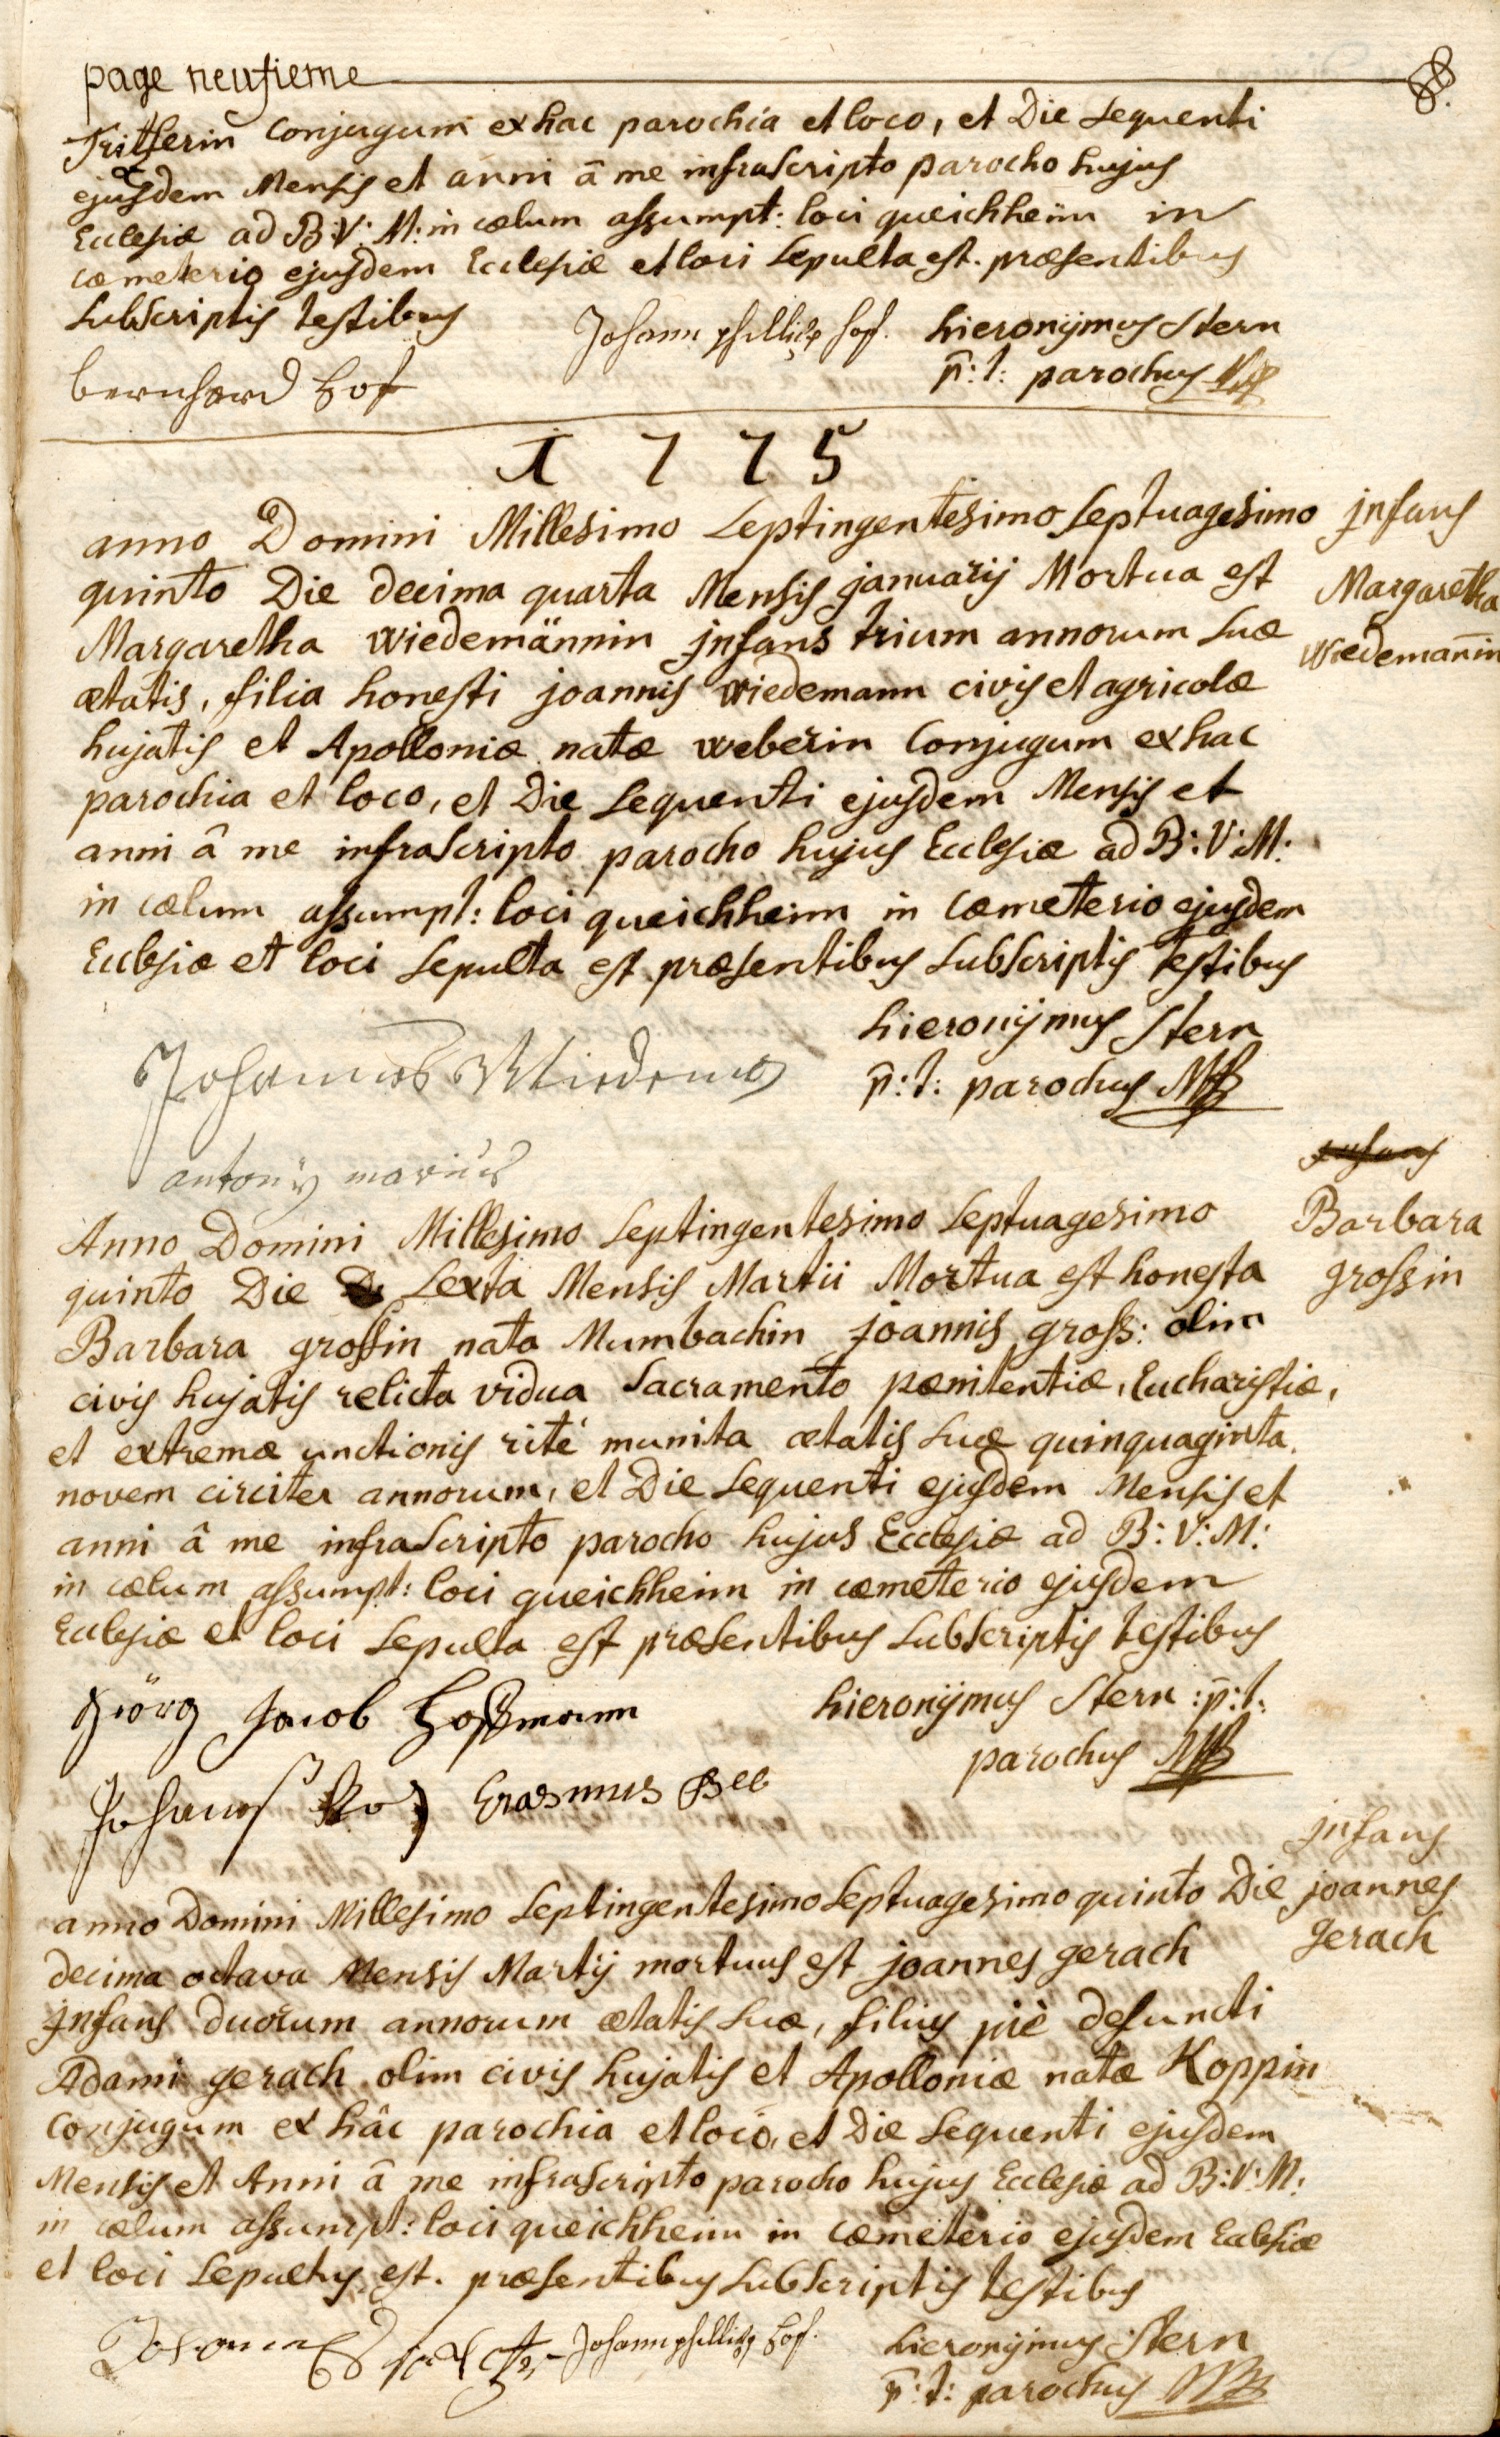 page neufieme
Tritserin Conjugum ex hac parochia et loco, et Die sequenti
ejusdem Mensis et anni â me infrascripto parocho hujus
Ecclesiæ ad B: V: M: in cælum assumpt: loci queichheim in
cæmeterio ejusdem Ecclesiæ et loci sepulta est. præsentibus
subscriptis testibus
Johann phillips hof. hieronÿmus Stern
bernhard hof
p̄: t: parochus
1775
anno Domini Millesimo septingentesimo septuagesimo
jnfans
quinto Die decima quarta Mensis januarij Mortua est
Margaretha
Margaretha wiedemännin jnfans trium annorum suæ
wiedemañin
ætatis, filia honesti joannis wiedemann civis et agricolæ
hujatis et Apolloniæ natæ weberin Conjugum ex hac
parochia et loco, et Die sequenti ejusdem Mensis et
anni â me infrascripto parocho hujus Ecclesiæ ad B: V: M:
in cælum assumpt: loci queichheim in cæmeterio ejusdem
Ecclesiæ et loci sepulta est præsentibus subscriptis testibus
hieronÿmus Stern
Johannes
p̄: t: parochus
antonÿ marius
Anno Domini Millesimo septingentesimo septuagesimo
Barbara
quinto Die sexta Mensis Martii Mortua est honesta
grossin
Barbara grossin nata Mumbachin joannis gross: olim
civis hujatis relicta vidua sacramento pænitentiæ, Eucharistiæ,
et extremæ unctionis rité munita ætatis suæ quinquaginta
novem circiter annorum, et Die sequenti ejusdem Mensis et
anni â me infrascripto parocho hujus Ecclesiæ ad B: V: M:
in cælum assumpt: loci queichheim in cæmeterio ejusdem
Ecclesiæ et loci sepulta est præsentibus subscriptis testibus
Görg Jacob Hoffmann
hieronÿmus Stern :p̄: t:
parochus
Johanes Erasmus
jnfans
anno Domini Millesimo septingentesimo septuagesimo quinto Die
joannes
decima octava Mensis Martij mortuus est joannes gerach
gerach
jnfans duorum annorum ætatis suæ, filius piè defuncti
Adami gerach olim civis hujatis et Apolloniæ natæ Koppin
conjugum ex hâc parochia et loco, et Die sequenti ejusdem
Mensis et Anni â me infrascripto parocho hujus Ecclesiæ ad B: V: M:
in cælum assumpt: loci queichheim in cæmeterio ejusdem Ecclesiæ
et loci sepultus est. præsentibus subscriptis testibus
Johann phillips hof. hieronÿmus Stern
p̄: t: parochus